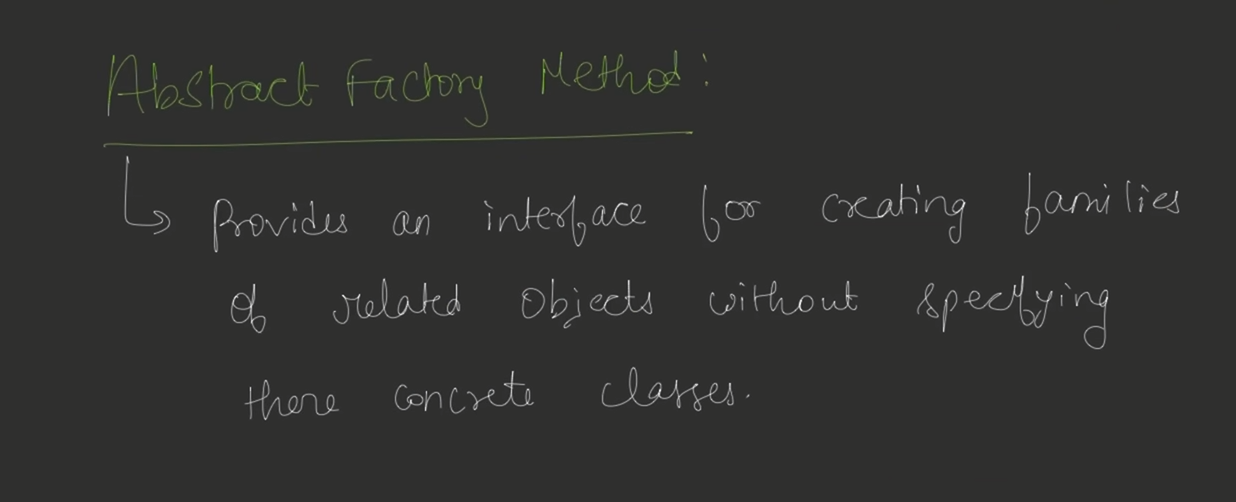 Abstract Factory Method:
Provides an interface for creating families
of related objects without specifying
there concrete classes.